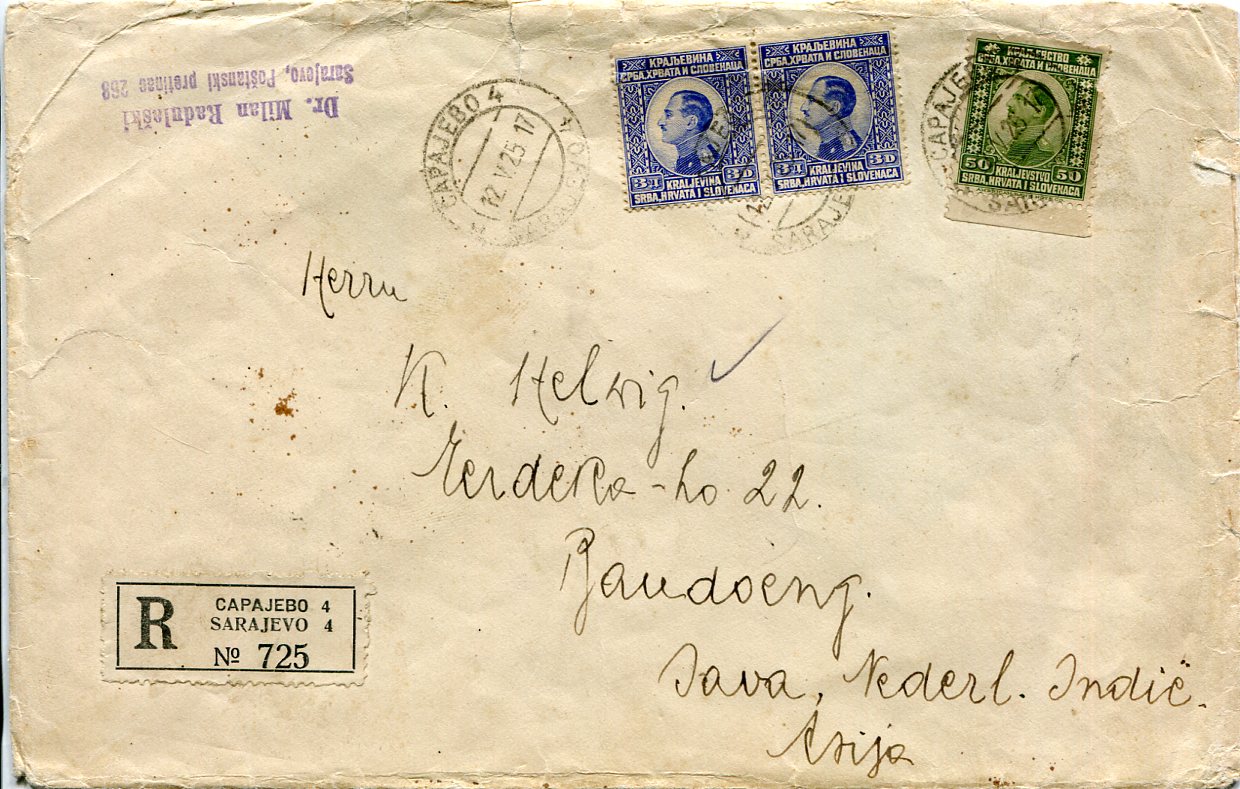 Dr. Milan Raduloški
Sarajevo, Poštanski pretinac 268
САРАЈЕВО 4
12.V.25 17
SARAJEVO 4
КРАЉЕВИНА
СРБА, ХРВАТА И СЛОВЕНАЦА
3Д 3D
KRALJEVINA
SRBA, HRVATA I SLOVENACA
КРАЉЕВИНА
СРБА, ХРВАТА И СЛОВЕНАЦА
3Д 3D
KRALJEVINA
SRBA, HRVATA I SLOVENACA
SARAJE
САРАЈЕ
КРАЉЕВСТВО
СРБА, ХРВАТА И СЛОВЕНАЦА
50 50
KRALJEVSTVO
SRBA, HRVATA I SLOVENACA
Herrn
K. Helwig.
22.
Bandoeng.
Java, Nederl. Indië.
Asija
R
САРАЈЕВО 4
SARAJEVO 4
№ 725